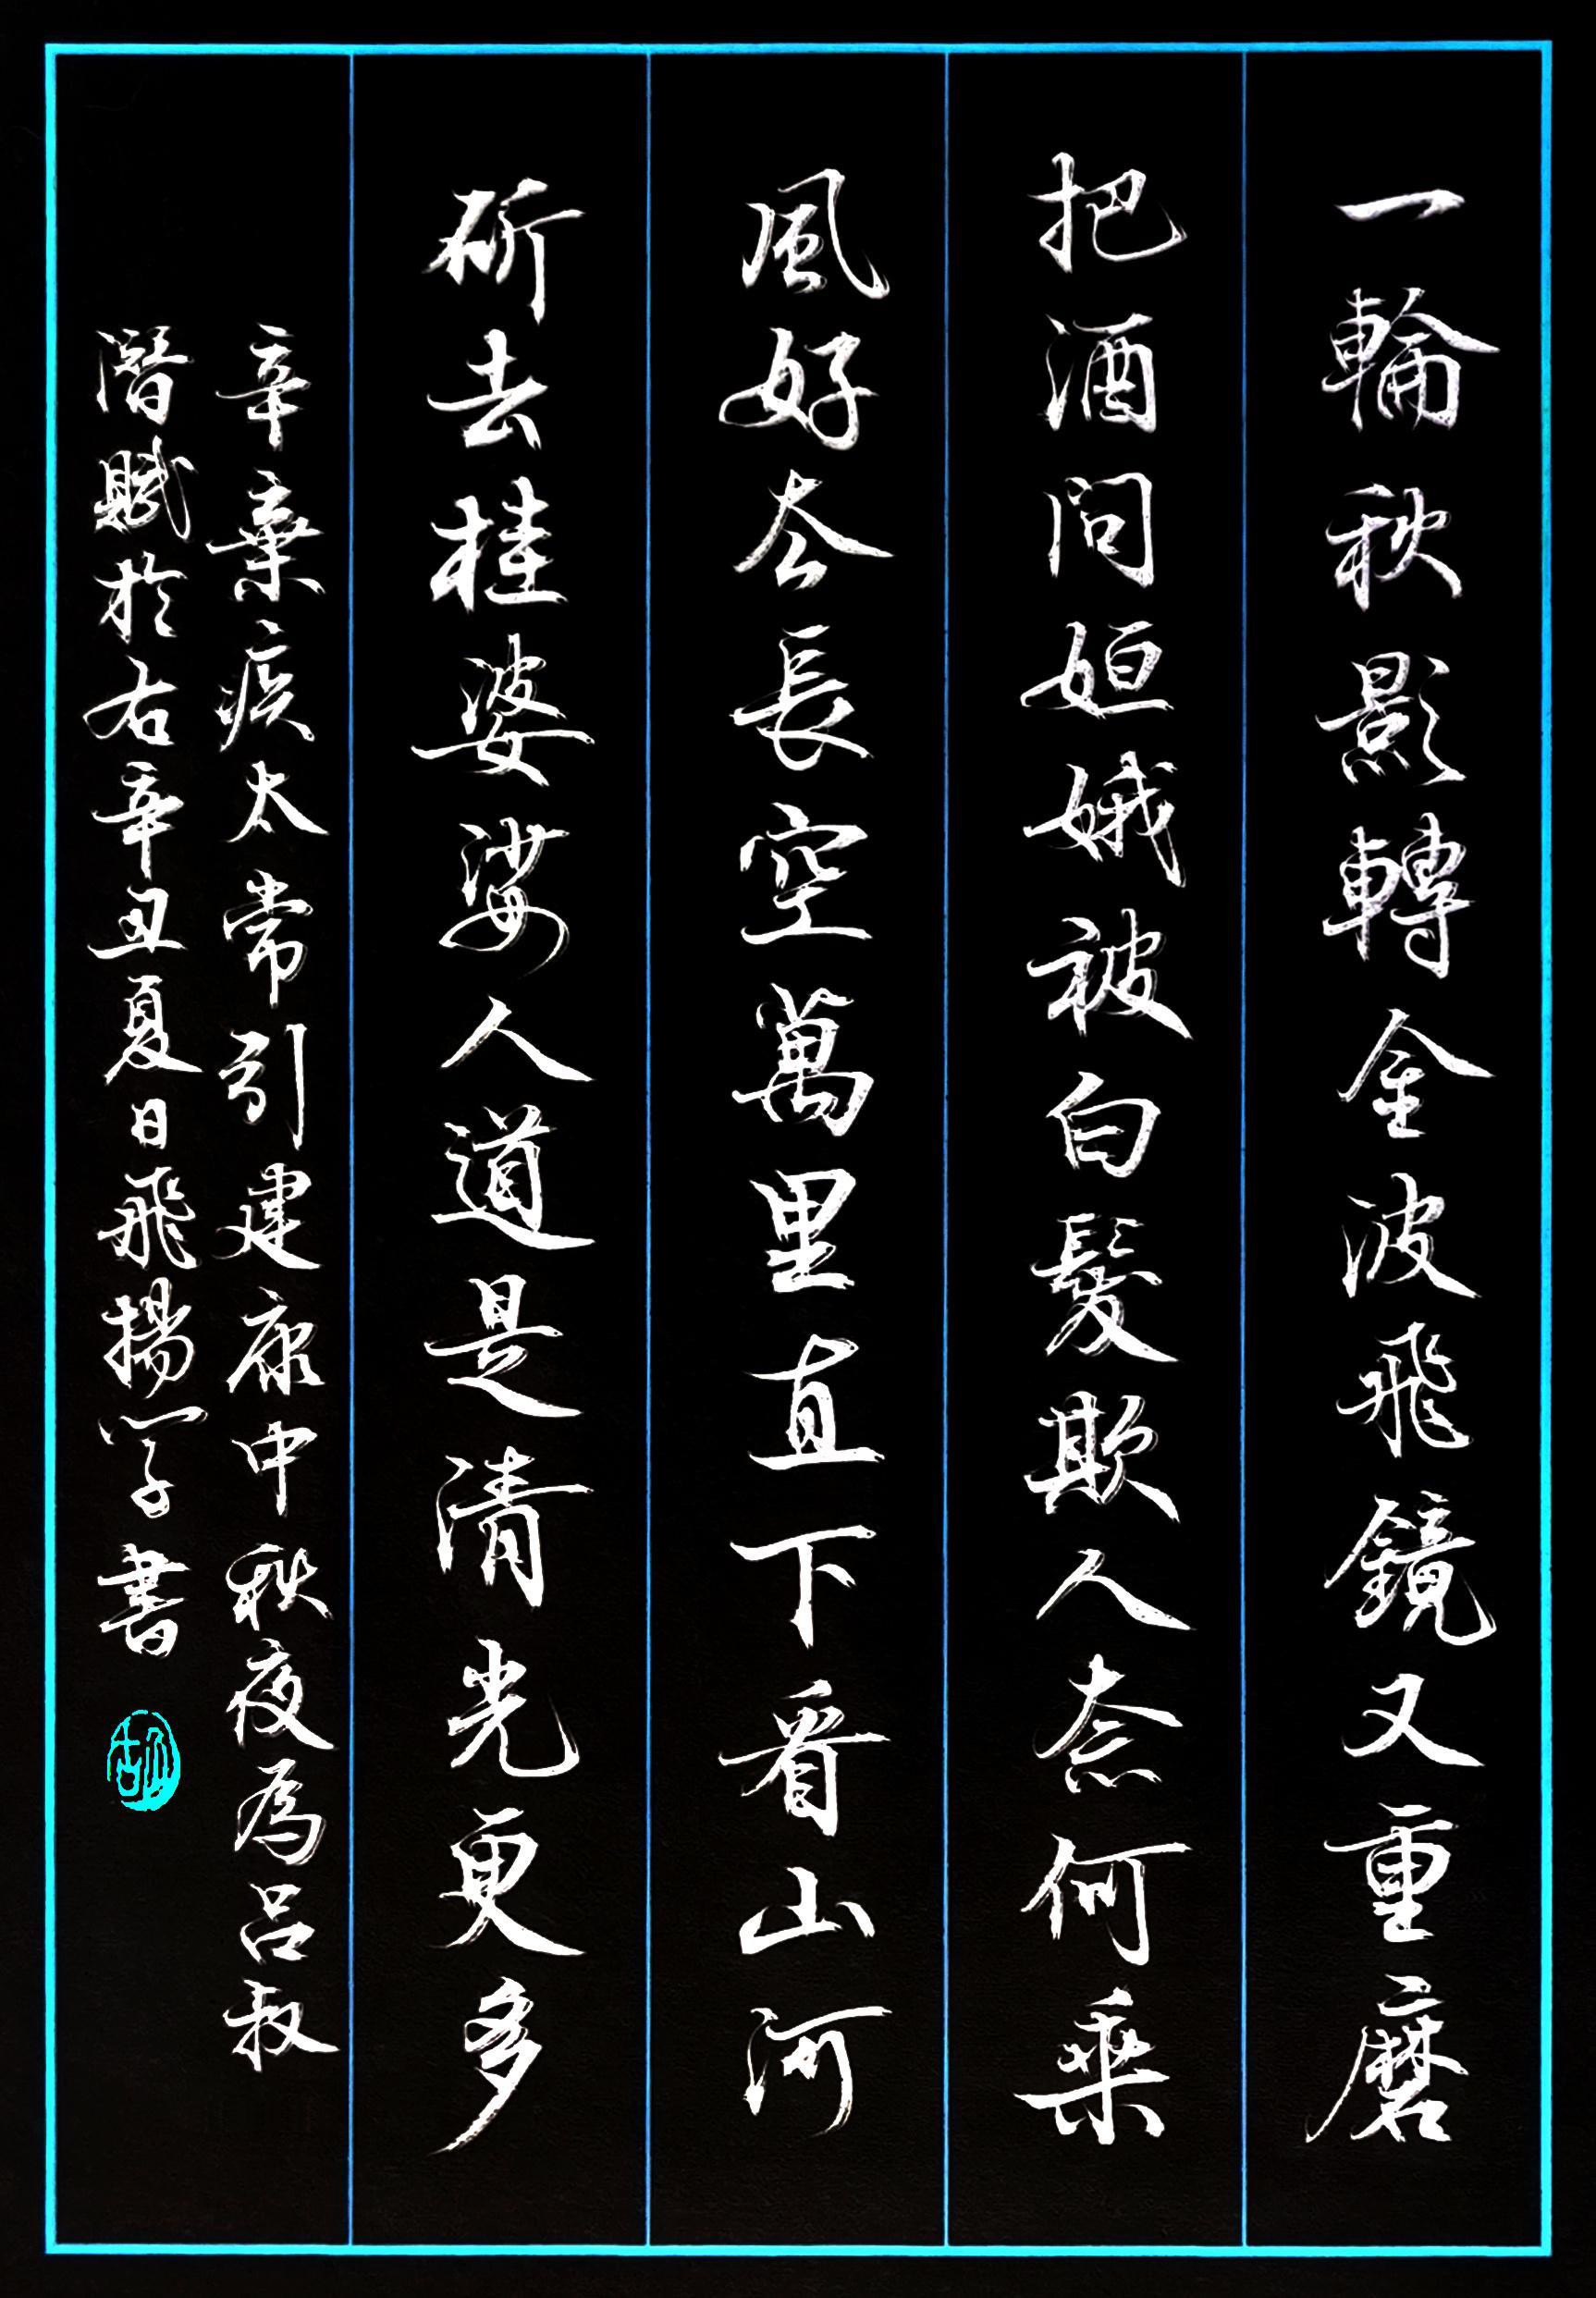 一輪秋影轉金波飛鏡又重磨
把酒問姮娥被白髮欺人奈何乘
風好去長空萬里直下看山河
斫去桂婆娑人道是清光更多
辛棄疾太常引建康中秋夜為呂叔
潛賦於右辛丑夏日飛揚学書
胡